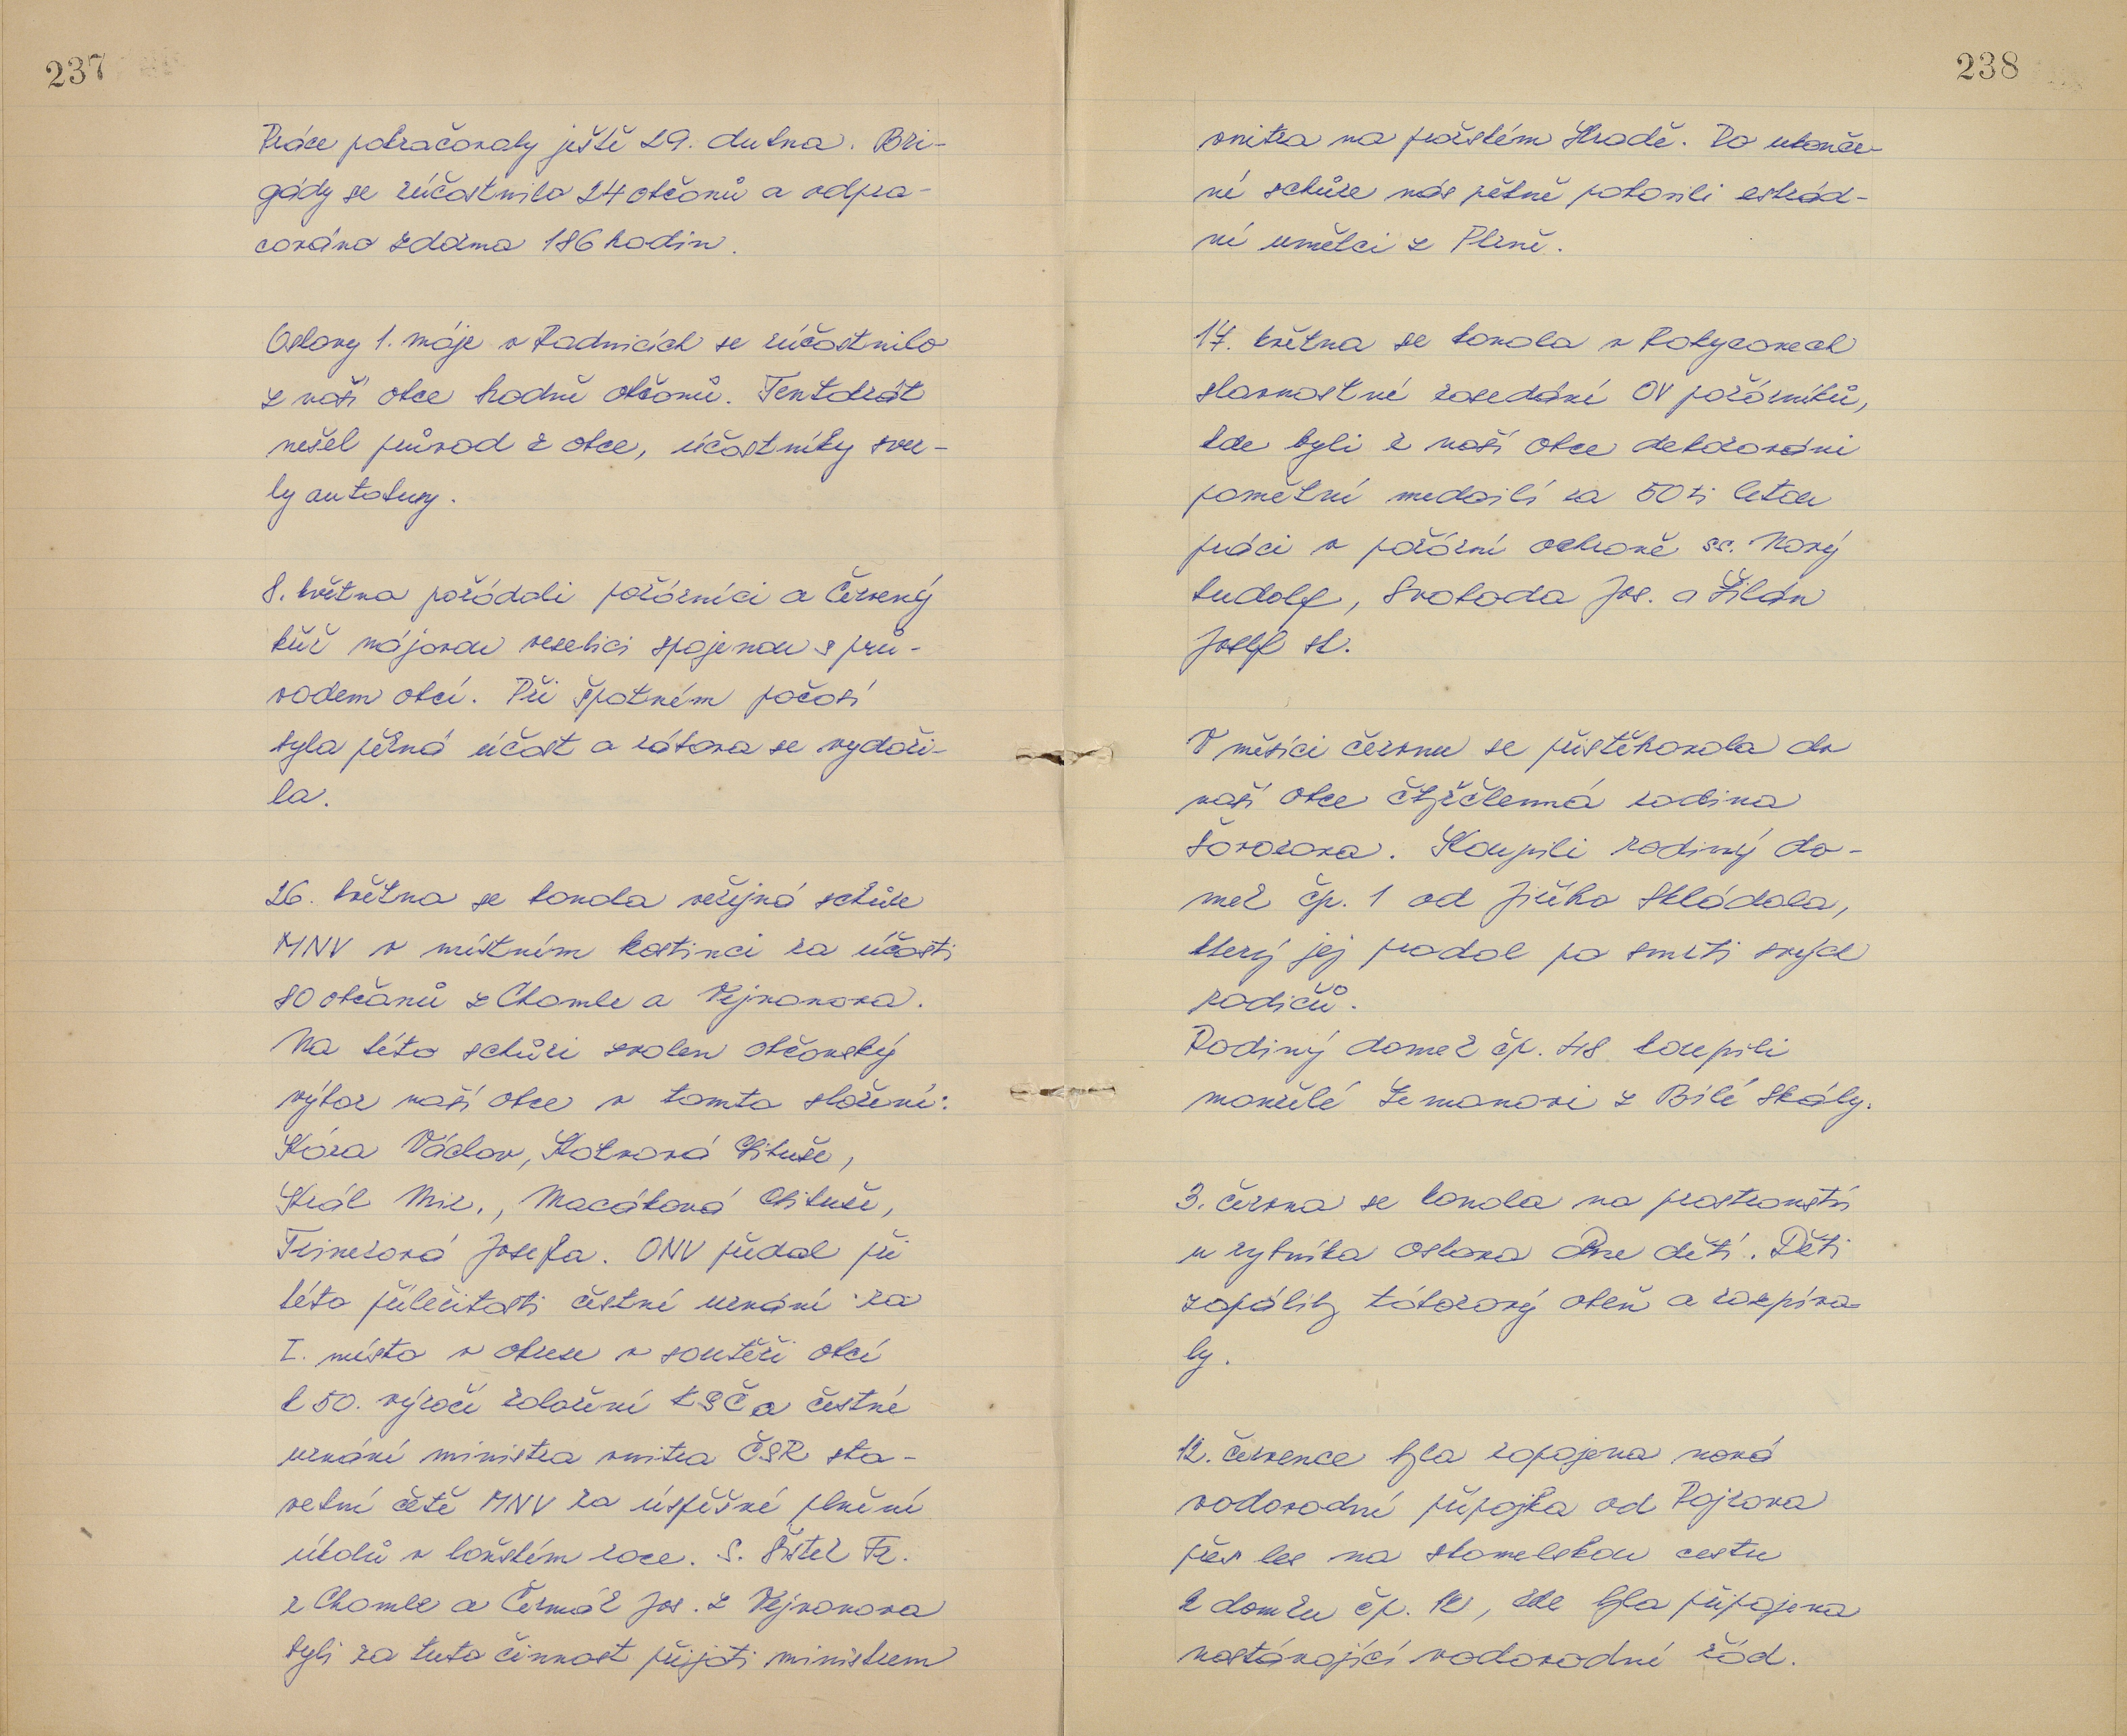 237
Práce pokračovaly ještě 29. dubna. Bri-
gády se zúčastnilo 24 občanů a odpra-
cováno zdarma 186 hodin.
Oslavy 1. máje v Radnicích se zúčastnilo
z naší obce hodně občanů. Tentokrát
nešel průvod z obce, účastníky svez-
ly autobusy.
8. května pořádali požárníci a Červený
kříž májovou veselici spojenou s prů-
vodem obcí. Při špatném počasí
byla pěkná účast a zábava se vydaři-
la.
26. května se konala veřejná schůze
MNV v místním hostinci za účasti
80 občanů z Chomle a Vejvanova.
Na této schůzi zvolen občanský
výbor naší obce v tomto složení:
Kára Václav, Kotvová Libuše,
Král Mir., Macáková Libuše,
Trinerová Josefa. ONV předal při
této příležitosti čestné uznání za
I. místo v okrese v soutěži obcí
k 50. výročí založení KSČ a čestné
uznání ministra vnitra ČSR sta-
vební četě MNV za úspěšné plnění
úkolů v loňském roce. S. Šístek Fr.
z Chomle a Čermák Jos. z Vejvanova
byli za tuto činnost přijati ministrem
238
vnitra na pražském Hradě. Po ukonče-
né schůze nás pěkně pobavili estrád-
ní umělci z Plzně.
17. května se konala v Rokycanech
slavnostní zasedání OV požárníků,
kde byli z naší obce dekorováni
pamětní medailí za 50 ti letou
práci v požární ochraně ss. Nový
Ludolf, Svoboda Jos. a Žilán
Josef st.
V měsíci červnu se přistěhovala do
naší obce čtyřčlenná rodina
Továrova. Koupili rodiný do-
mek čp. 1 od Jiřího Skládala,
který jej prodal po smrti svých
rodičů.
Rodiný domek čp. 48 koupili
manželé Zemanovi z Bílé Skály.
3. června se konala na prostranství
u rybníka oslava Dne dětí. Děti
zapálily táborový oheň a zazpíva-
ly.
12. července byla zapojena nová
vodovodní přípojka od Pajzova
přes les na stomelskou cestu
k domku čp. 12, kde byla připojena
nastávající vodovodní řád.